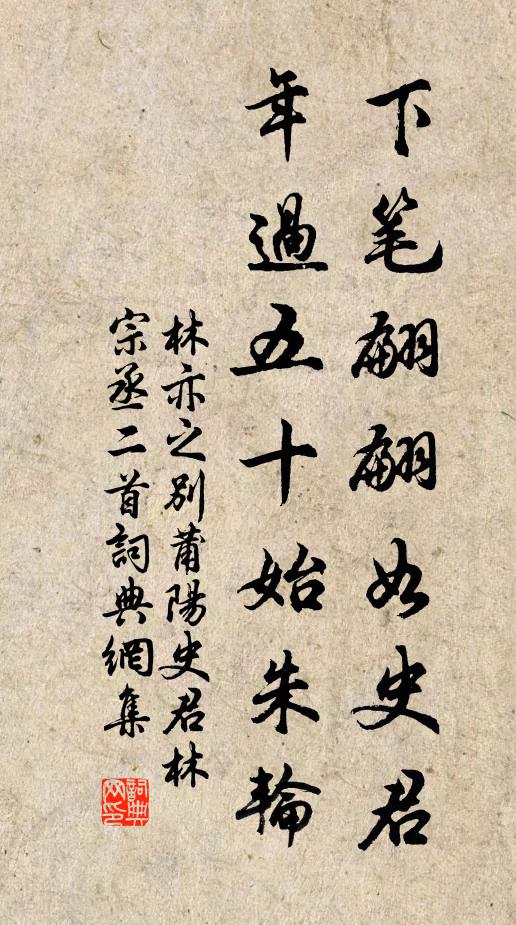 下笔翩翩如史君
年過五十始朱輪
林亦之别莆陽史君林
宗丞二首詞典網集
詞典网印